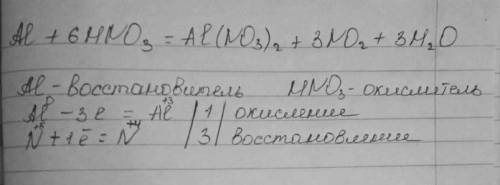 Al + 6HNO₃ = Al(NO₃)₂ + 3NO₂ + 3H₂O
Al - восстановитель HNO₃ - окислитель
Al⁰ - 3e = Al⁺³ | 1 | окисление
N⁺⁵ + 1ē = N⁺⁴ | 3 | восстановление